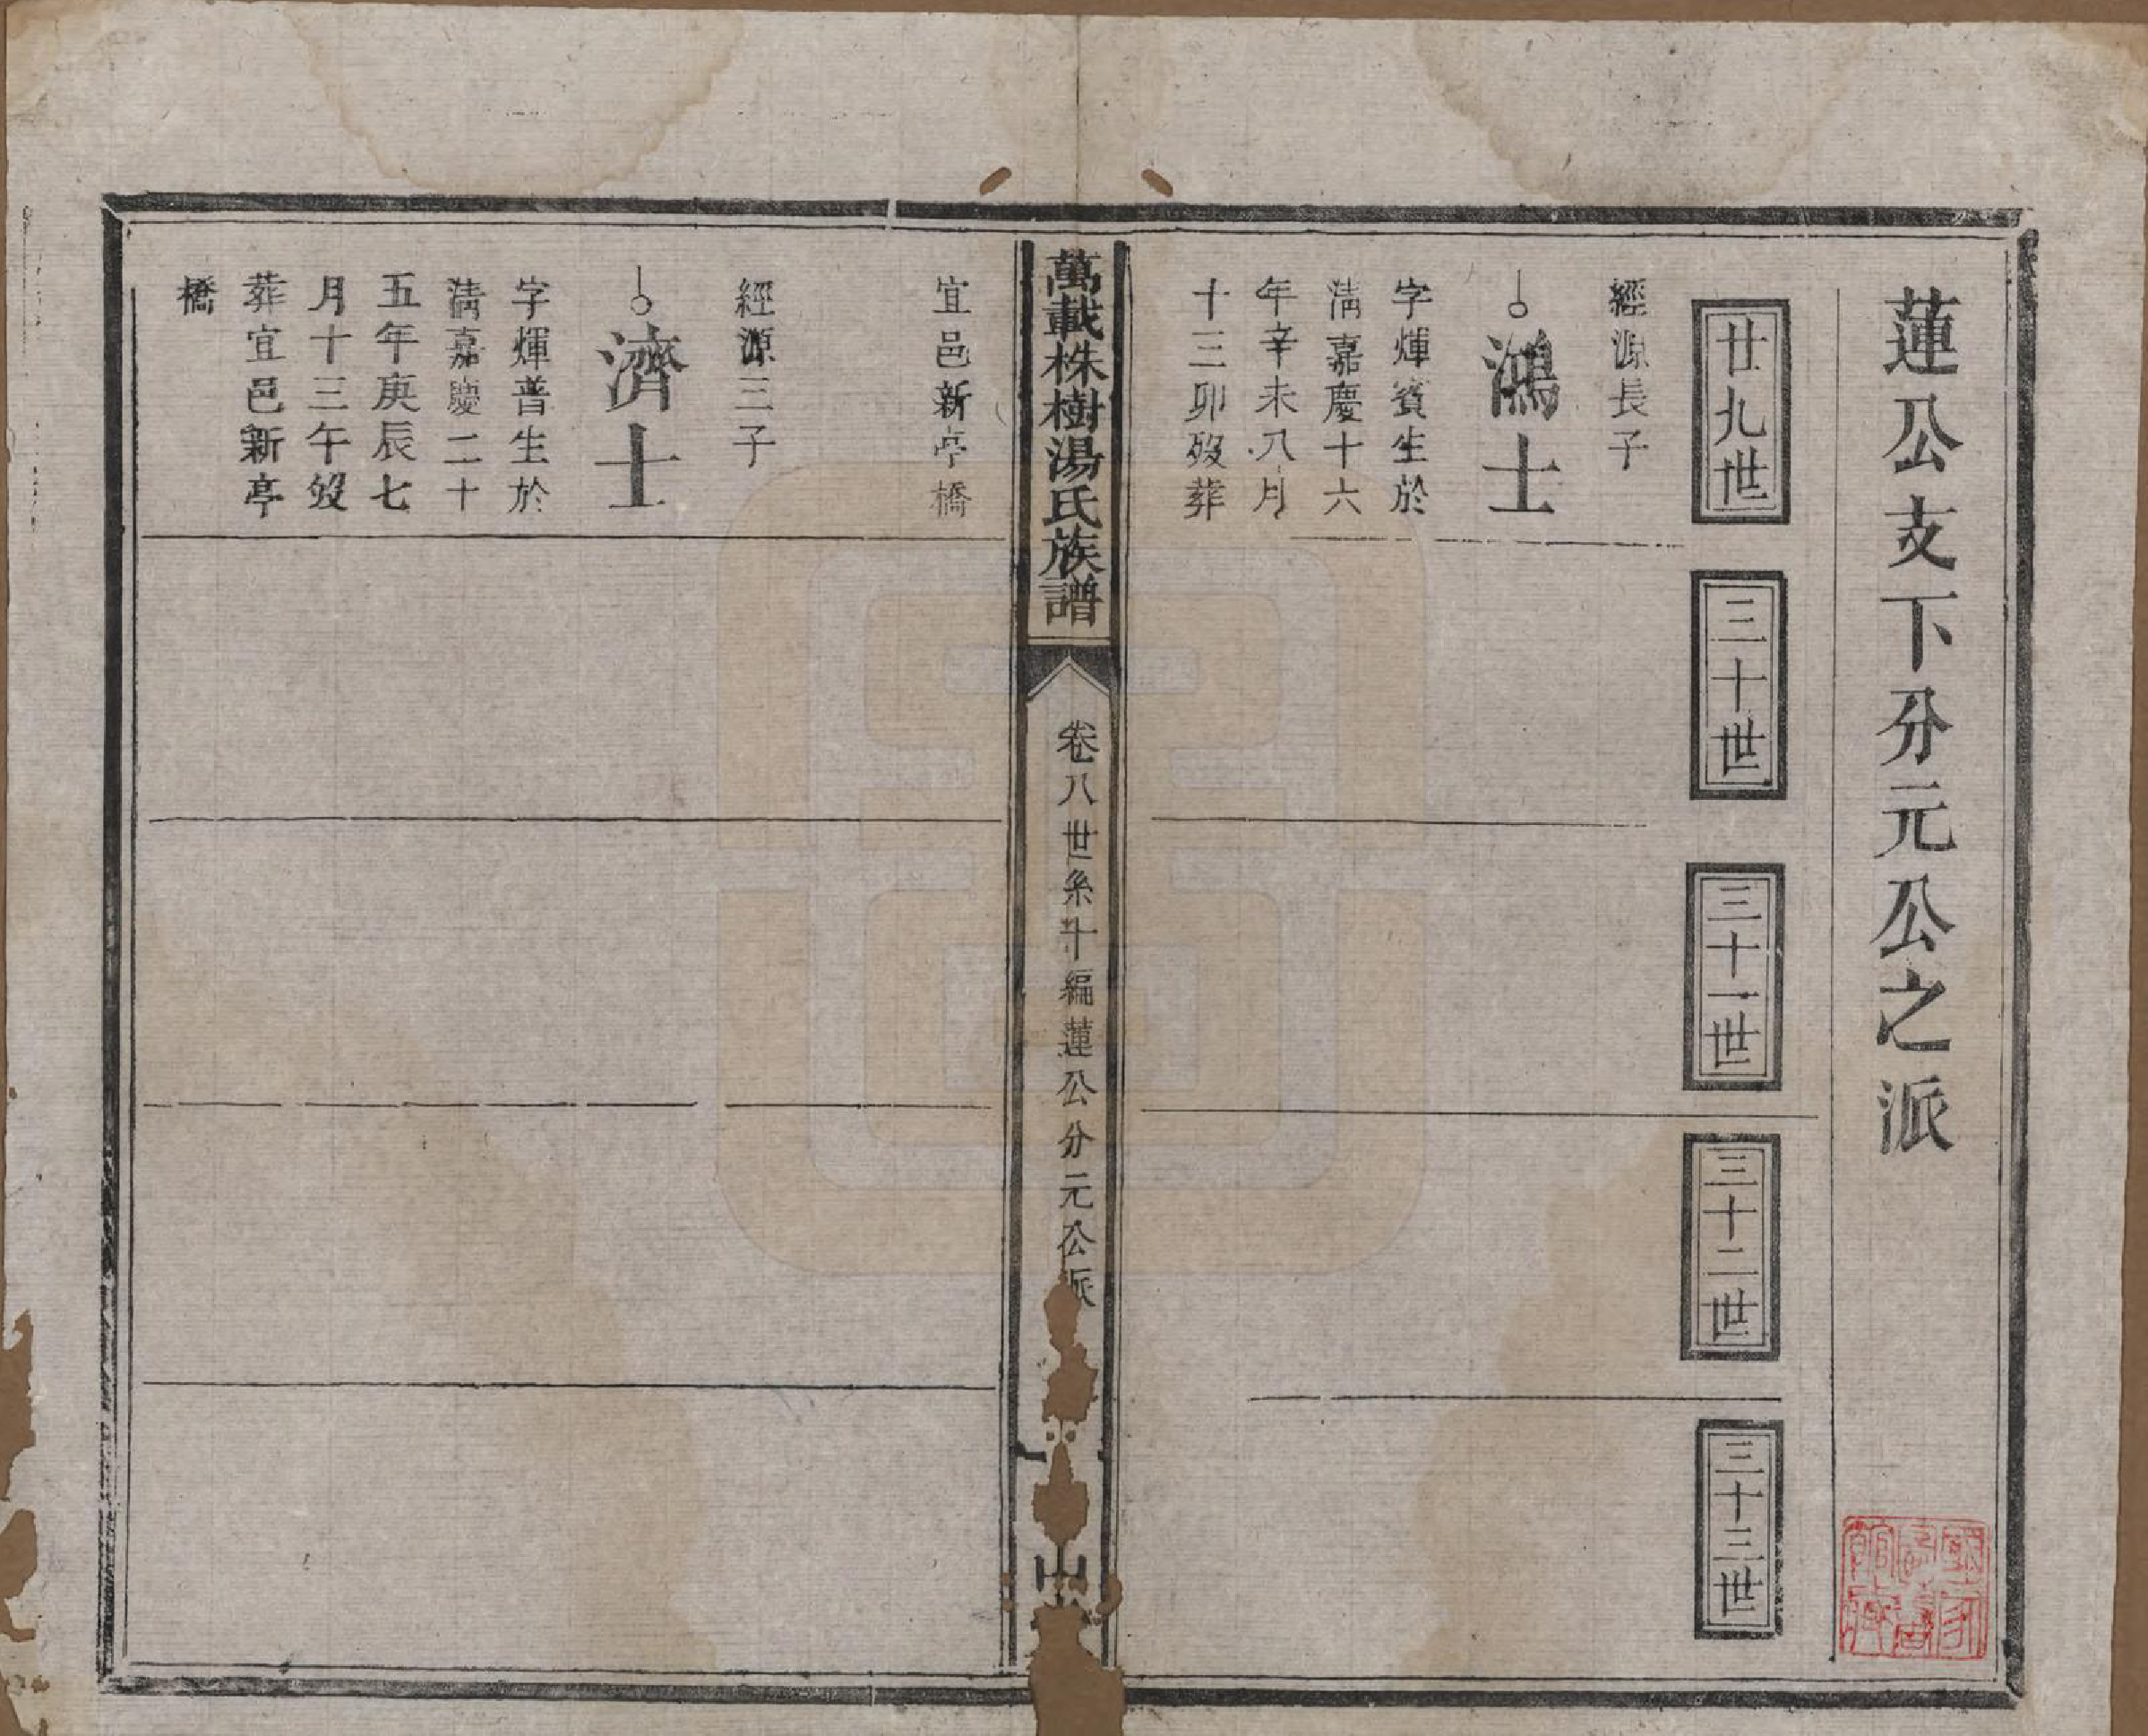 蓮公支下分元公之派
廿九世
三十世
三十一世
三十二世
三十三世
經源長子
鴻士
字煇賓生於
清嘉慶十六
年辛未八月
十三卯歿葬
宜邑新亭橋
萬載株樹湯氏族譜
卷八世系十編蓮公分元公派
山
經源三子
濟士
字煇普生於
清嘉慶二十
五年庚辰七
月十三午歿
葬宜邑新亭
橋
國家圖書館藏